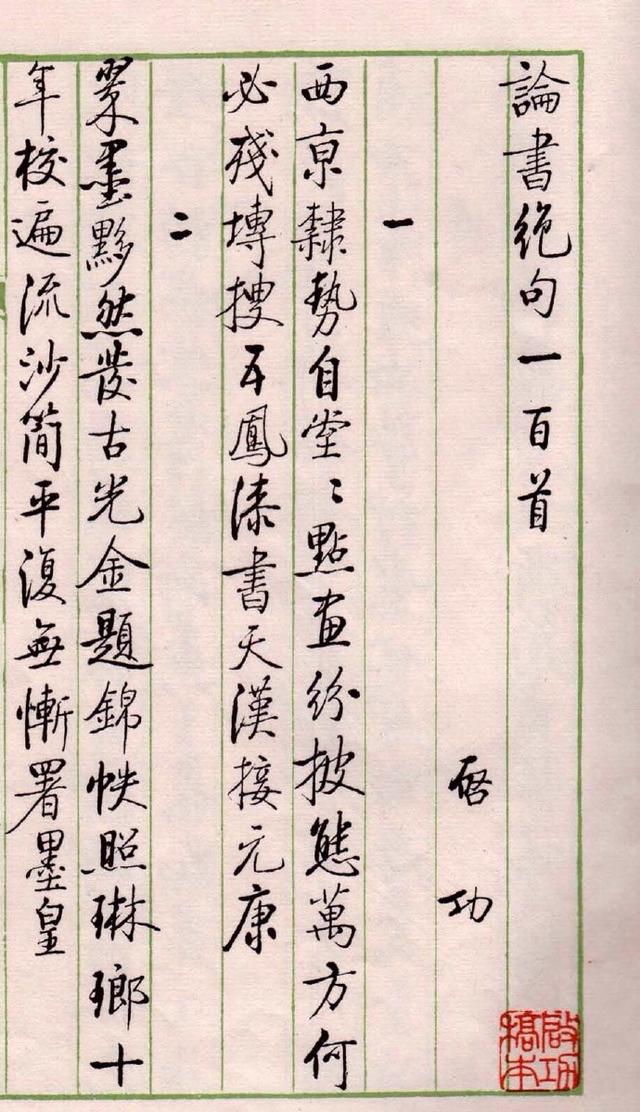 論書絕句一百首
啓功
一
西京隸勢自堂〻點畫紛披態萬方何
必殘塼搜五鳳漆書天漢接元康
二
翠墨黟然發古光金題錦帙照琳瑯十
年校遍流沙簡平復無慚署墨皇
啟功
稿本